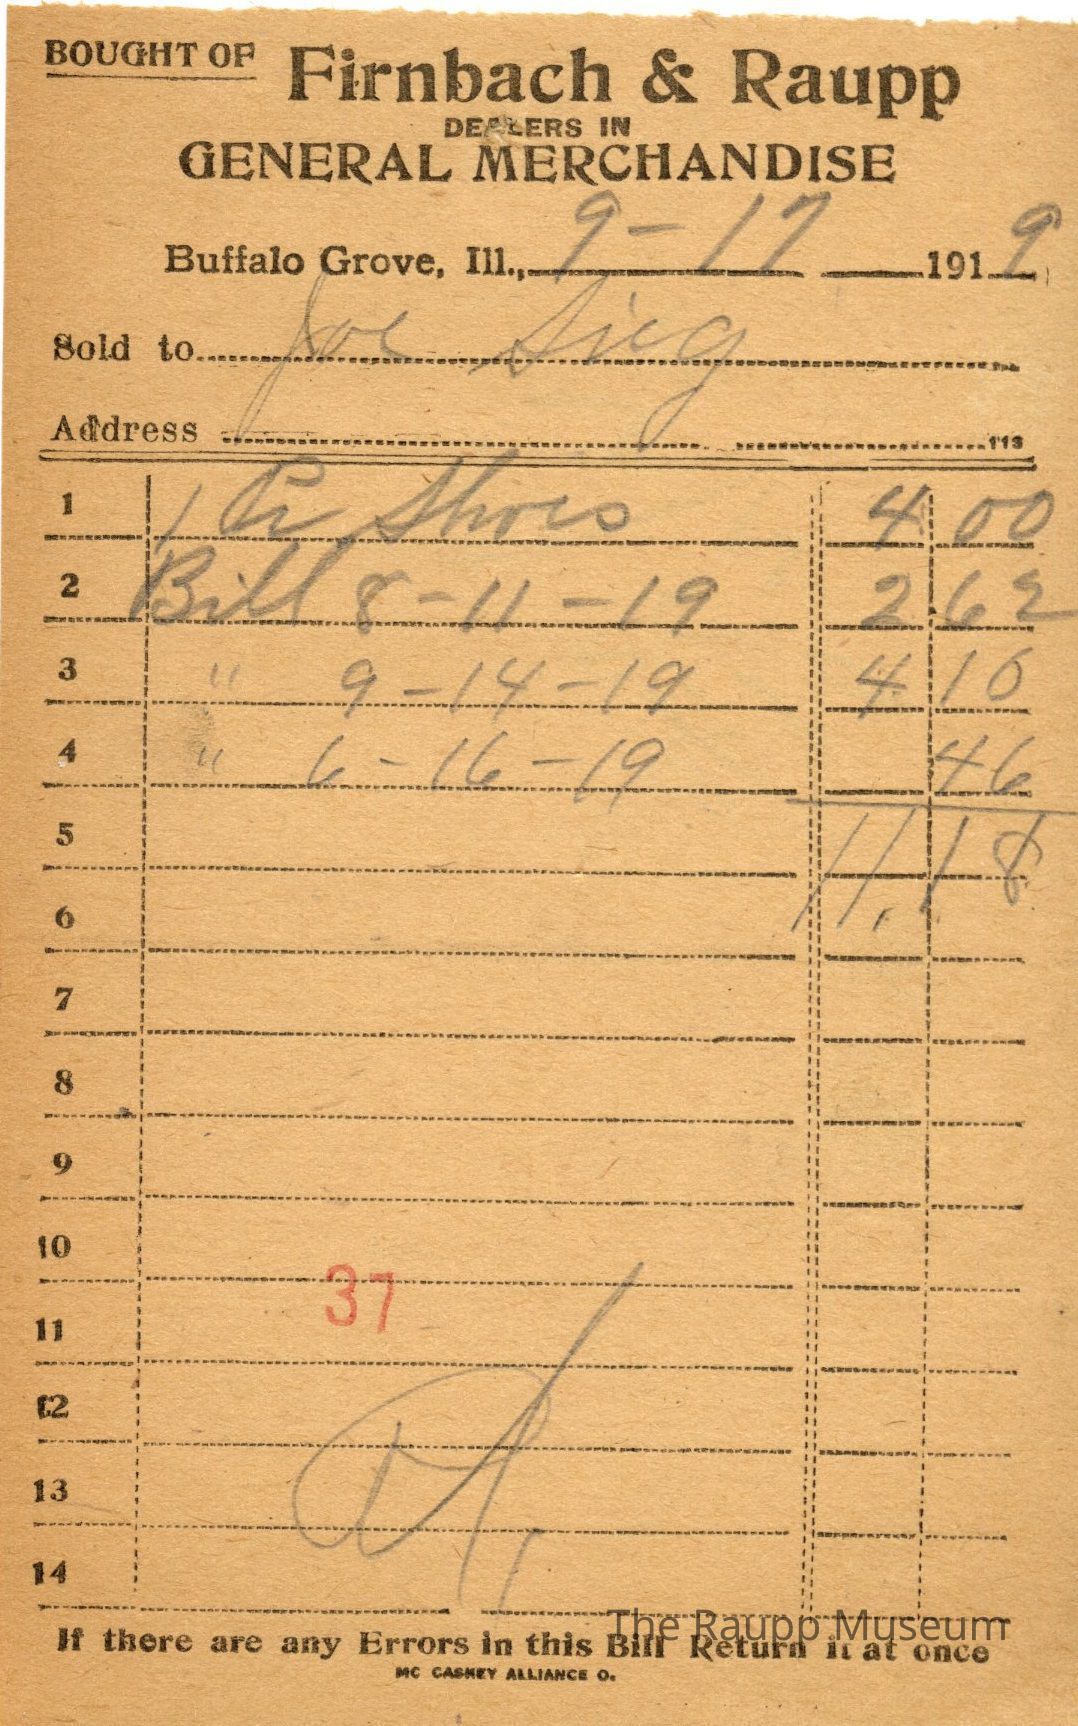 BOUGHT OF Firnbach & Raupp
DEALERS IN
GENERAL MERCHANDISE
Buffalo Grove, Ill., 9-17 1919
Sold to Joe Sieg
Address 113
1 1 Pr Shoes 4 00
2 Bill 8-11-19 2 62
3 " 9-14-19 4 10
4 " 6-16-19 46
5 11.18
6
7
8
9
10
37
11
12
13
14
The Raupp Museum
If there are any Errors in this Bill Return it at once
MC CASKEY ALLIANCE O.